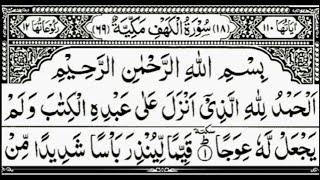 اٰیَاتُهَا ١١٠ (١٨) سُوْرَةُ الْكَهْفِ مَكِّیَّةٌ (٦٩) رُكُوْعَاتُهَا ١٢
بِسْمِ اللّٰهِ الرَّحْمٰنِ الرَّحِیْمِ
اَلْحَمْدُ لِلّٰهِ الَّذِیْۤ اَنْزَلَ عَلٰی عَبْدِهِ الْكِتٰبَ وَلَمْ
یَجْعَلْ لَّهٗ عِوَجًا ١ سكتة قَیِّمًا لِّیُنْذِرَ بَاْسًا شَدِیْدًا مِّنْ